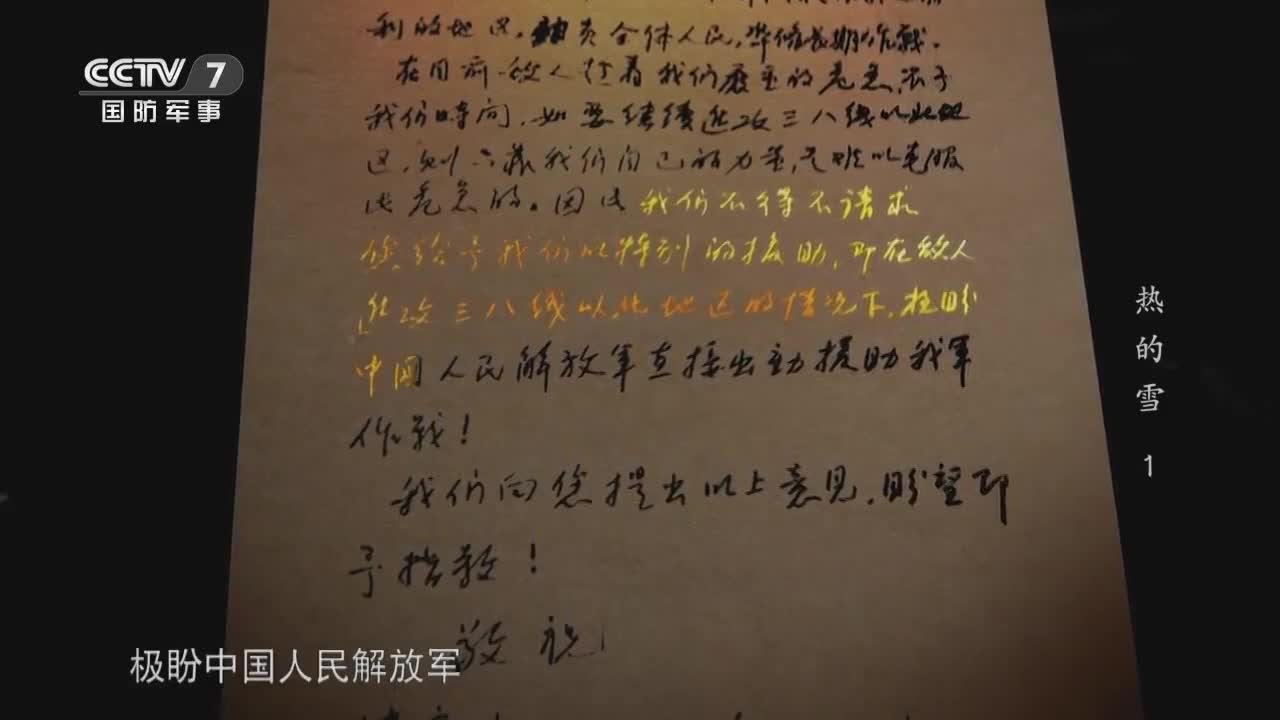 CCTV 7
国防军事
利的地区，动员全体人民，准备长期作战。
在目前敌人趁着我们严重的危急，不予
我们时间，如要继续进攻三八线以北地
区，则只靠我们自己的力量，是难以克服
此危急的。因此我们不得不请求
您给予我们以特别的援助，即在敌人
进攻三八线以北地区的情况下，极盼
中国人民解放军直接出动援助我军
作战！
我们向您提出以上意见，盼望即
予指教！
敬祝
热的雪 1
极盼中国人民解放军